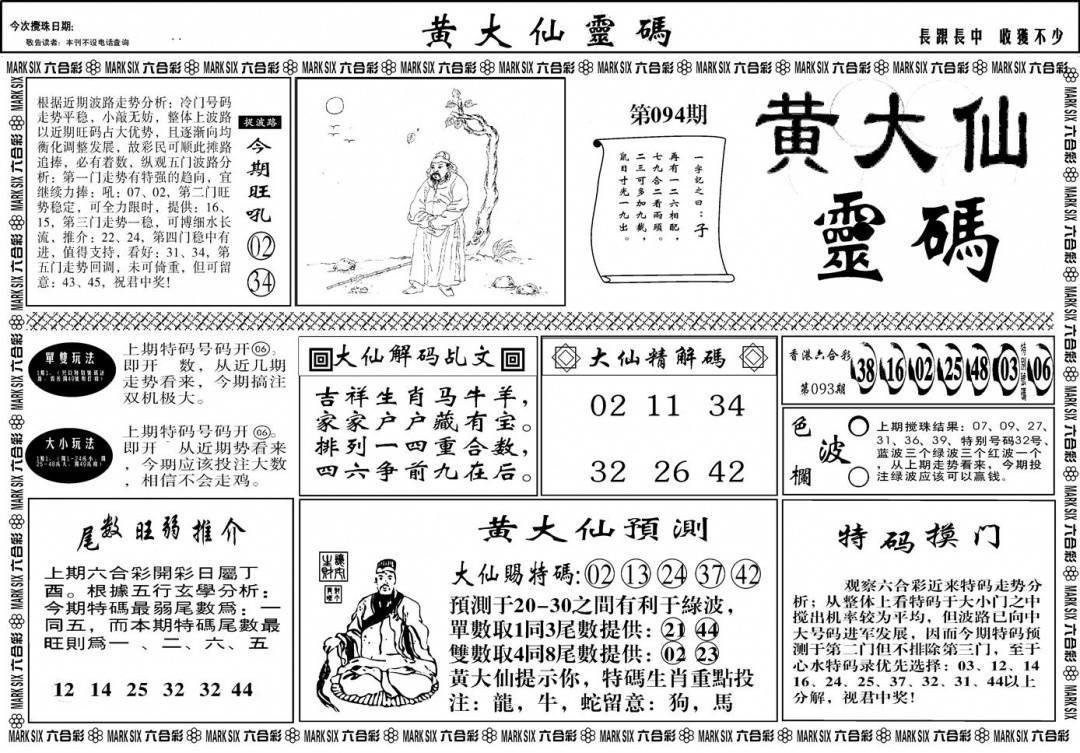 今次攪珠日期:
敬告读者：本刊不设电话查询
黄大仙靈碼
長跟長中 收獲不少
MARK SIX 六合彩 MARK SIX 六合彩 MARK SIX 六合彩 MARK SIX 六合彩 MARK SIX 六合彩 MARK SIX 六合彩 MARK SIX 六合彩 MARK SIX 六合彩 MARK SIX 六合彩 MARK SIX 六合彩 MARK SIX 六合彩
根据近期波路走势分析：冷门号码
走势平稳，小敲无妨，整体上波路
以近期旺码占大优势，且逐渐向均
衡化调整发展，故彩民可顺此摊路
追捧，必有着数，纵观五门波路分
析：第一门走势有特强的趋向，宜
继续力捧：吼：07、02，第二门旺
势稳定，可全力限时，提供：16、
15，第三门走势一稳，可博细水长
流，推介：22、24，第四门稳中有
进，值得支持，看好：31、34，第
五门走势回调，未可倚重，但可留
意：43、45，祝君中奖！
捉波路
今期旺吼
02
34
第094期
一字記之曰：子
再有一二六相配，
七九合二看兩頭。
二三可多加九截，
鼠目寸光一九出。
黄大仙
靈碼
單雙玩法
上期特码号码开06。
即开 数，从近几期
走势看来，今期搞注
双机极大。
大小玩法
上期特码号码开06。
即开 从近期势看来
，今期应该投注大数
，相信不会走鸡。
大仙解码乩文
吉祥生肖马牛羊，
家家户户藏有宝。
排列一四重合数，
四六争前九在后。
大仙精解碼
02 11 34
32 26 42
香港六合彩
第093期
38 16 02 25 48 03 特别號碼 06
色波欄
上期搅珠结果：07、09、27、
31、36、39、特别号码32号、
蓝波三个绿波三个红波一个
，从上期走势看来，今期投
注绿波应该可以赢钱。
尾数旺弱推介
上期六合彩開彩日屬丁
酉。根據五行玄學分析：
今期特碼最弱尾數爲：一
同五，而本期特碼尾數最
旺則爲一 、二、六、五
12 14 25 32 32 44
黄大仙預測
大仙賜特碼:02 13 24 37 42
預測于20-30之間有利于綠波，
單數取1同3尾數提供：21 44
雙數取4同8尾數提供：02 23
黄大仙提示你，特碼生肖重點投
注：龍，牛，蛇留意：狗，馬
特码摸门
观察六合彩近来特码走势分
析；从整体上看特码于大小门之中
搅出机率较为平均，但波路已向中
大号码进军发展，因而今期特码预
测于第二门但不排除第三门，至于
心水特码录优先选择：03、12、14
16、24、25、37、32、31、44以上
分解，视君中奖！
MARK SIX 六合彩 MARK SIX 六合彩 MARK SIX 六合彩 MARK SIX 六合彩 MARK SIX 六合彩 MARK SIX 六合彩 MARK SIX 六合彩 MARK SIX 六合彩 MARK SIX 六合彩 MARK SIX 六合彩 MARK SIX 六合彩